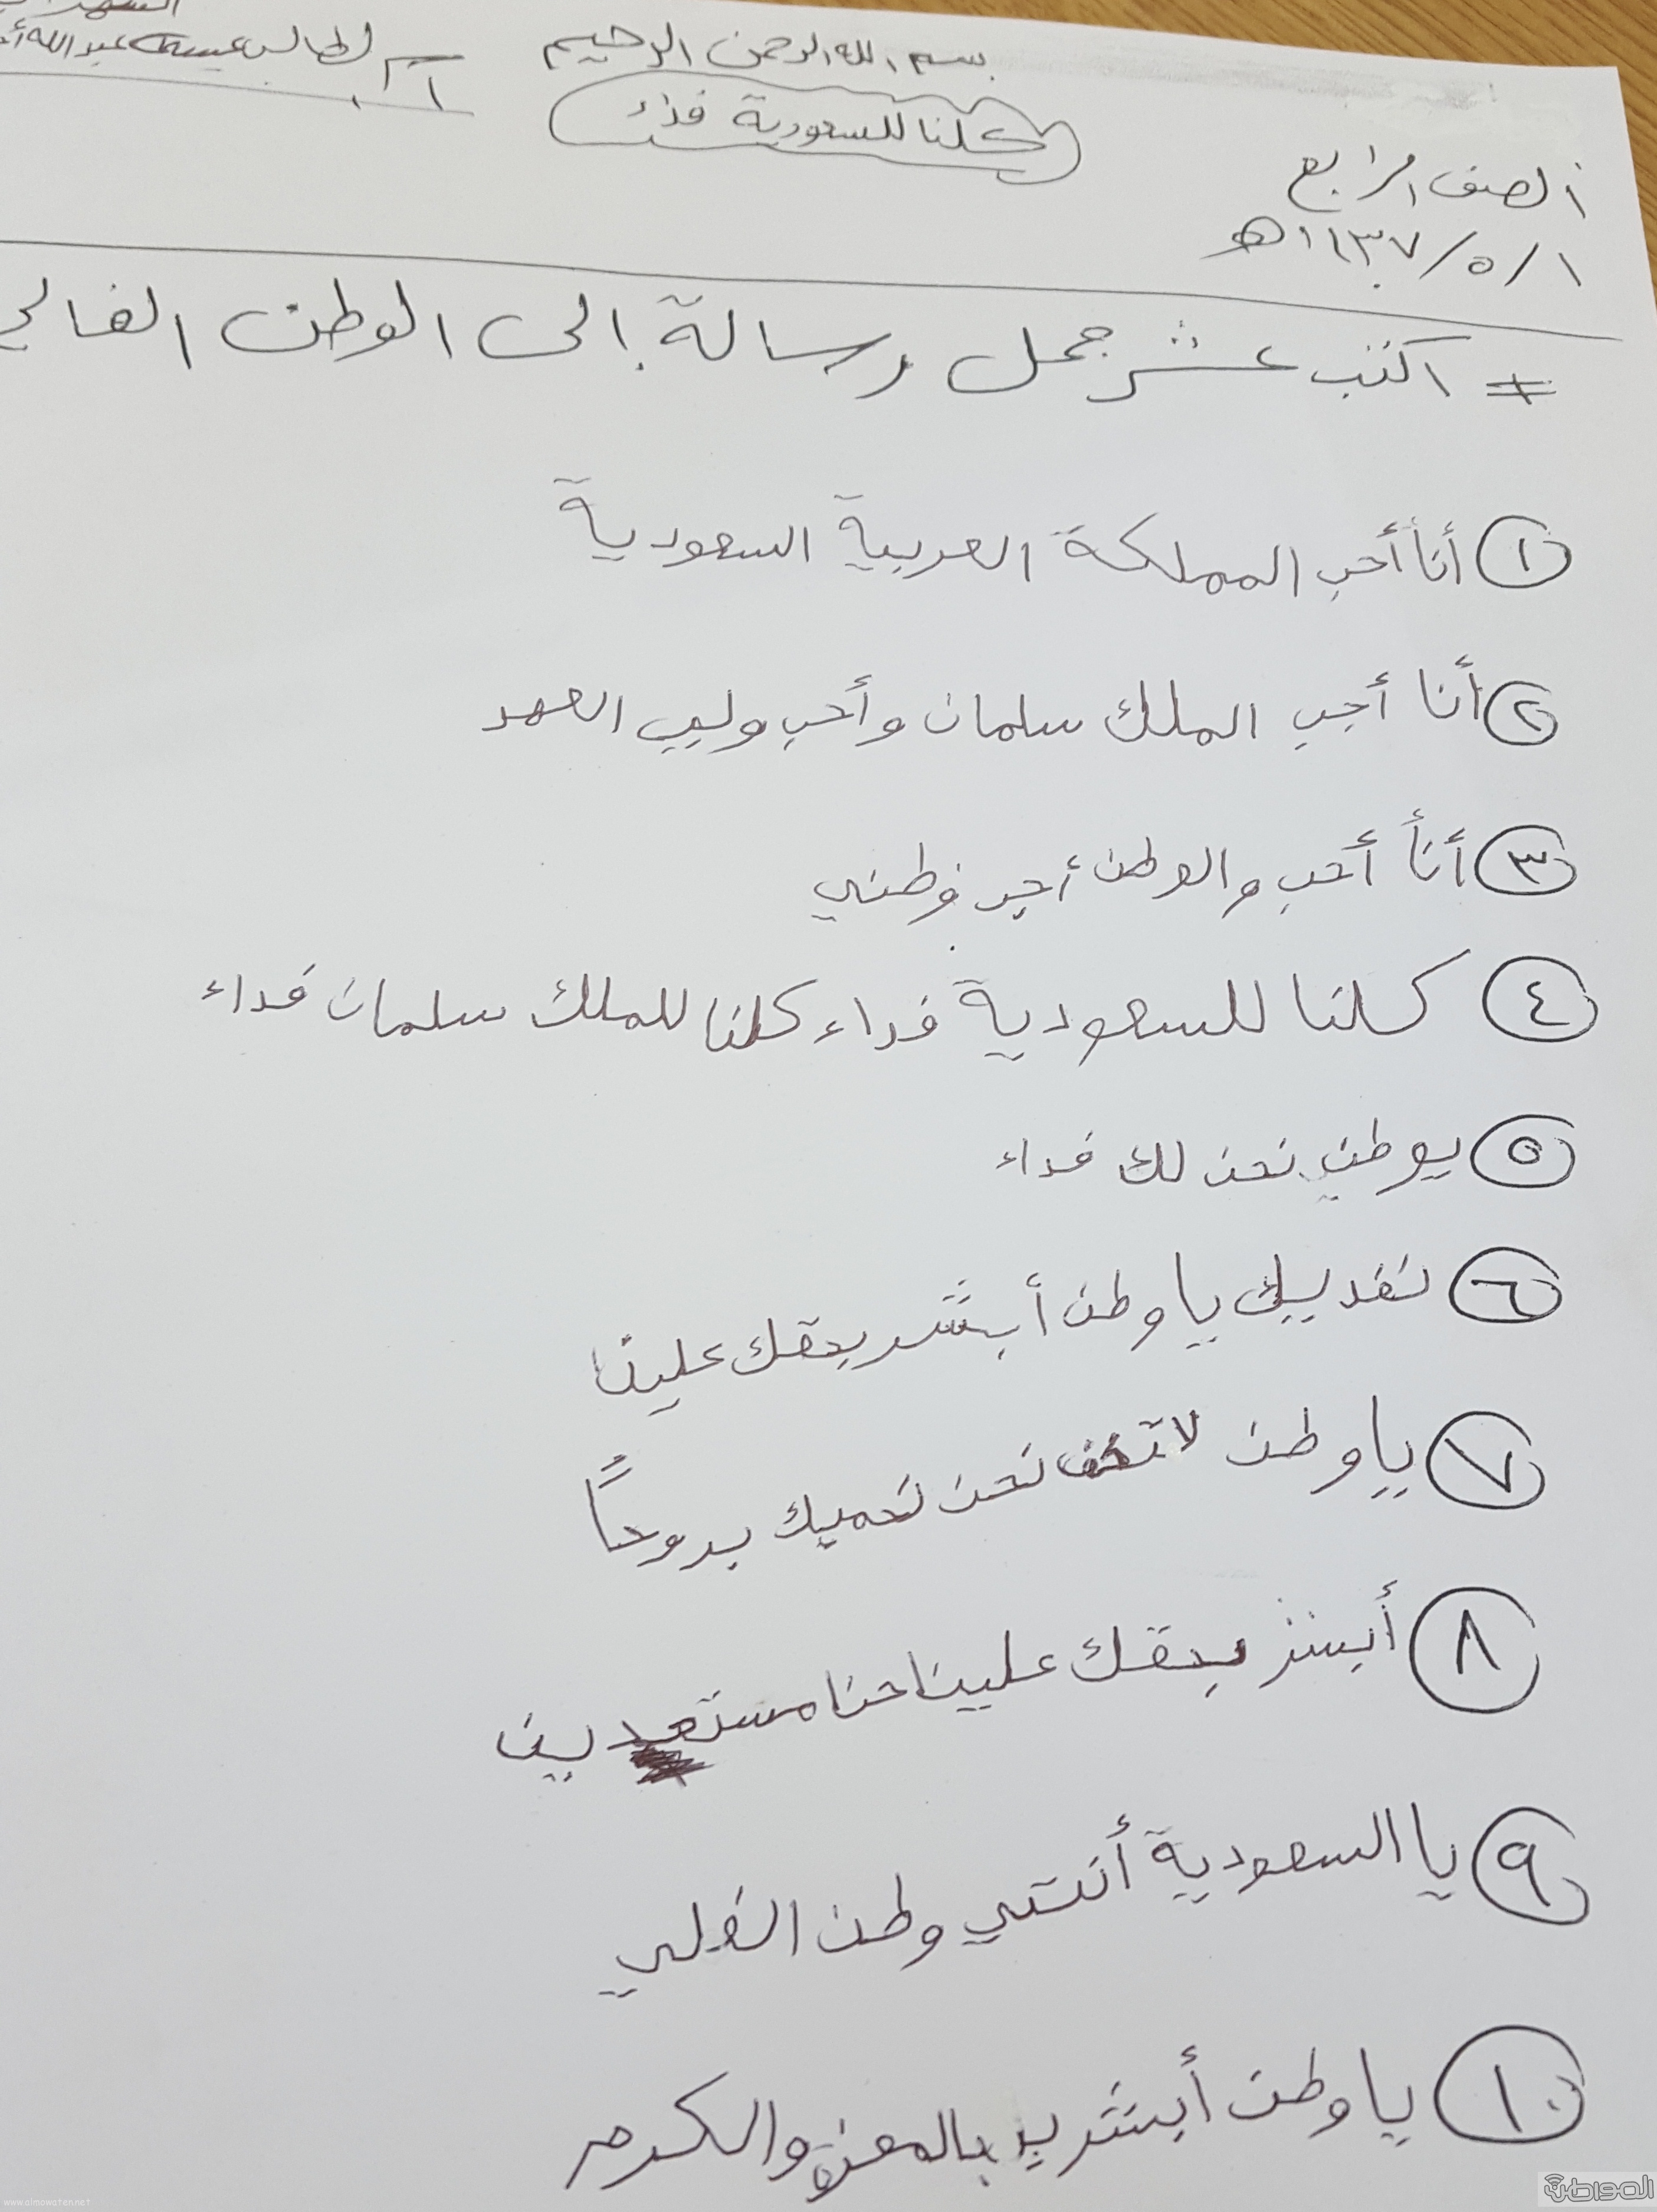 بسم الله الرحمن الرحيم
كلنا للسعودية فداء
الطالب عبدالله
الصف الرابع
١/٥/١٤٣٧هـ
# اكتب عشر جمل رسالة إلى الوطن الغالي
١ أنا أحب المملكة العربية السعودية
٢ أنا أحب الملك سلمان وأحب وليي العهد
٣ أنا أحب والوطن أحب وطني
٤ كلنا للسعودية فداء كلنا للملك سلمان فداء
٥ يوطن نحن لك فداء
٦ نفدييك يا وطن أبشر بحقك علينا
٧ يا وطن لا تخف نحن نحميك بروحاً
٨ أبشر بحقك علينا حنا مستعدين
٩ يا السعودية أنتي وطن الغلي
١٠ يا وطن أبشر بالعزة والكرم
المواطن
www.almowaten.net